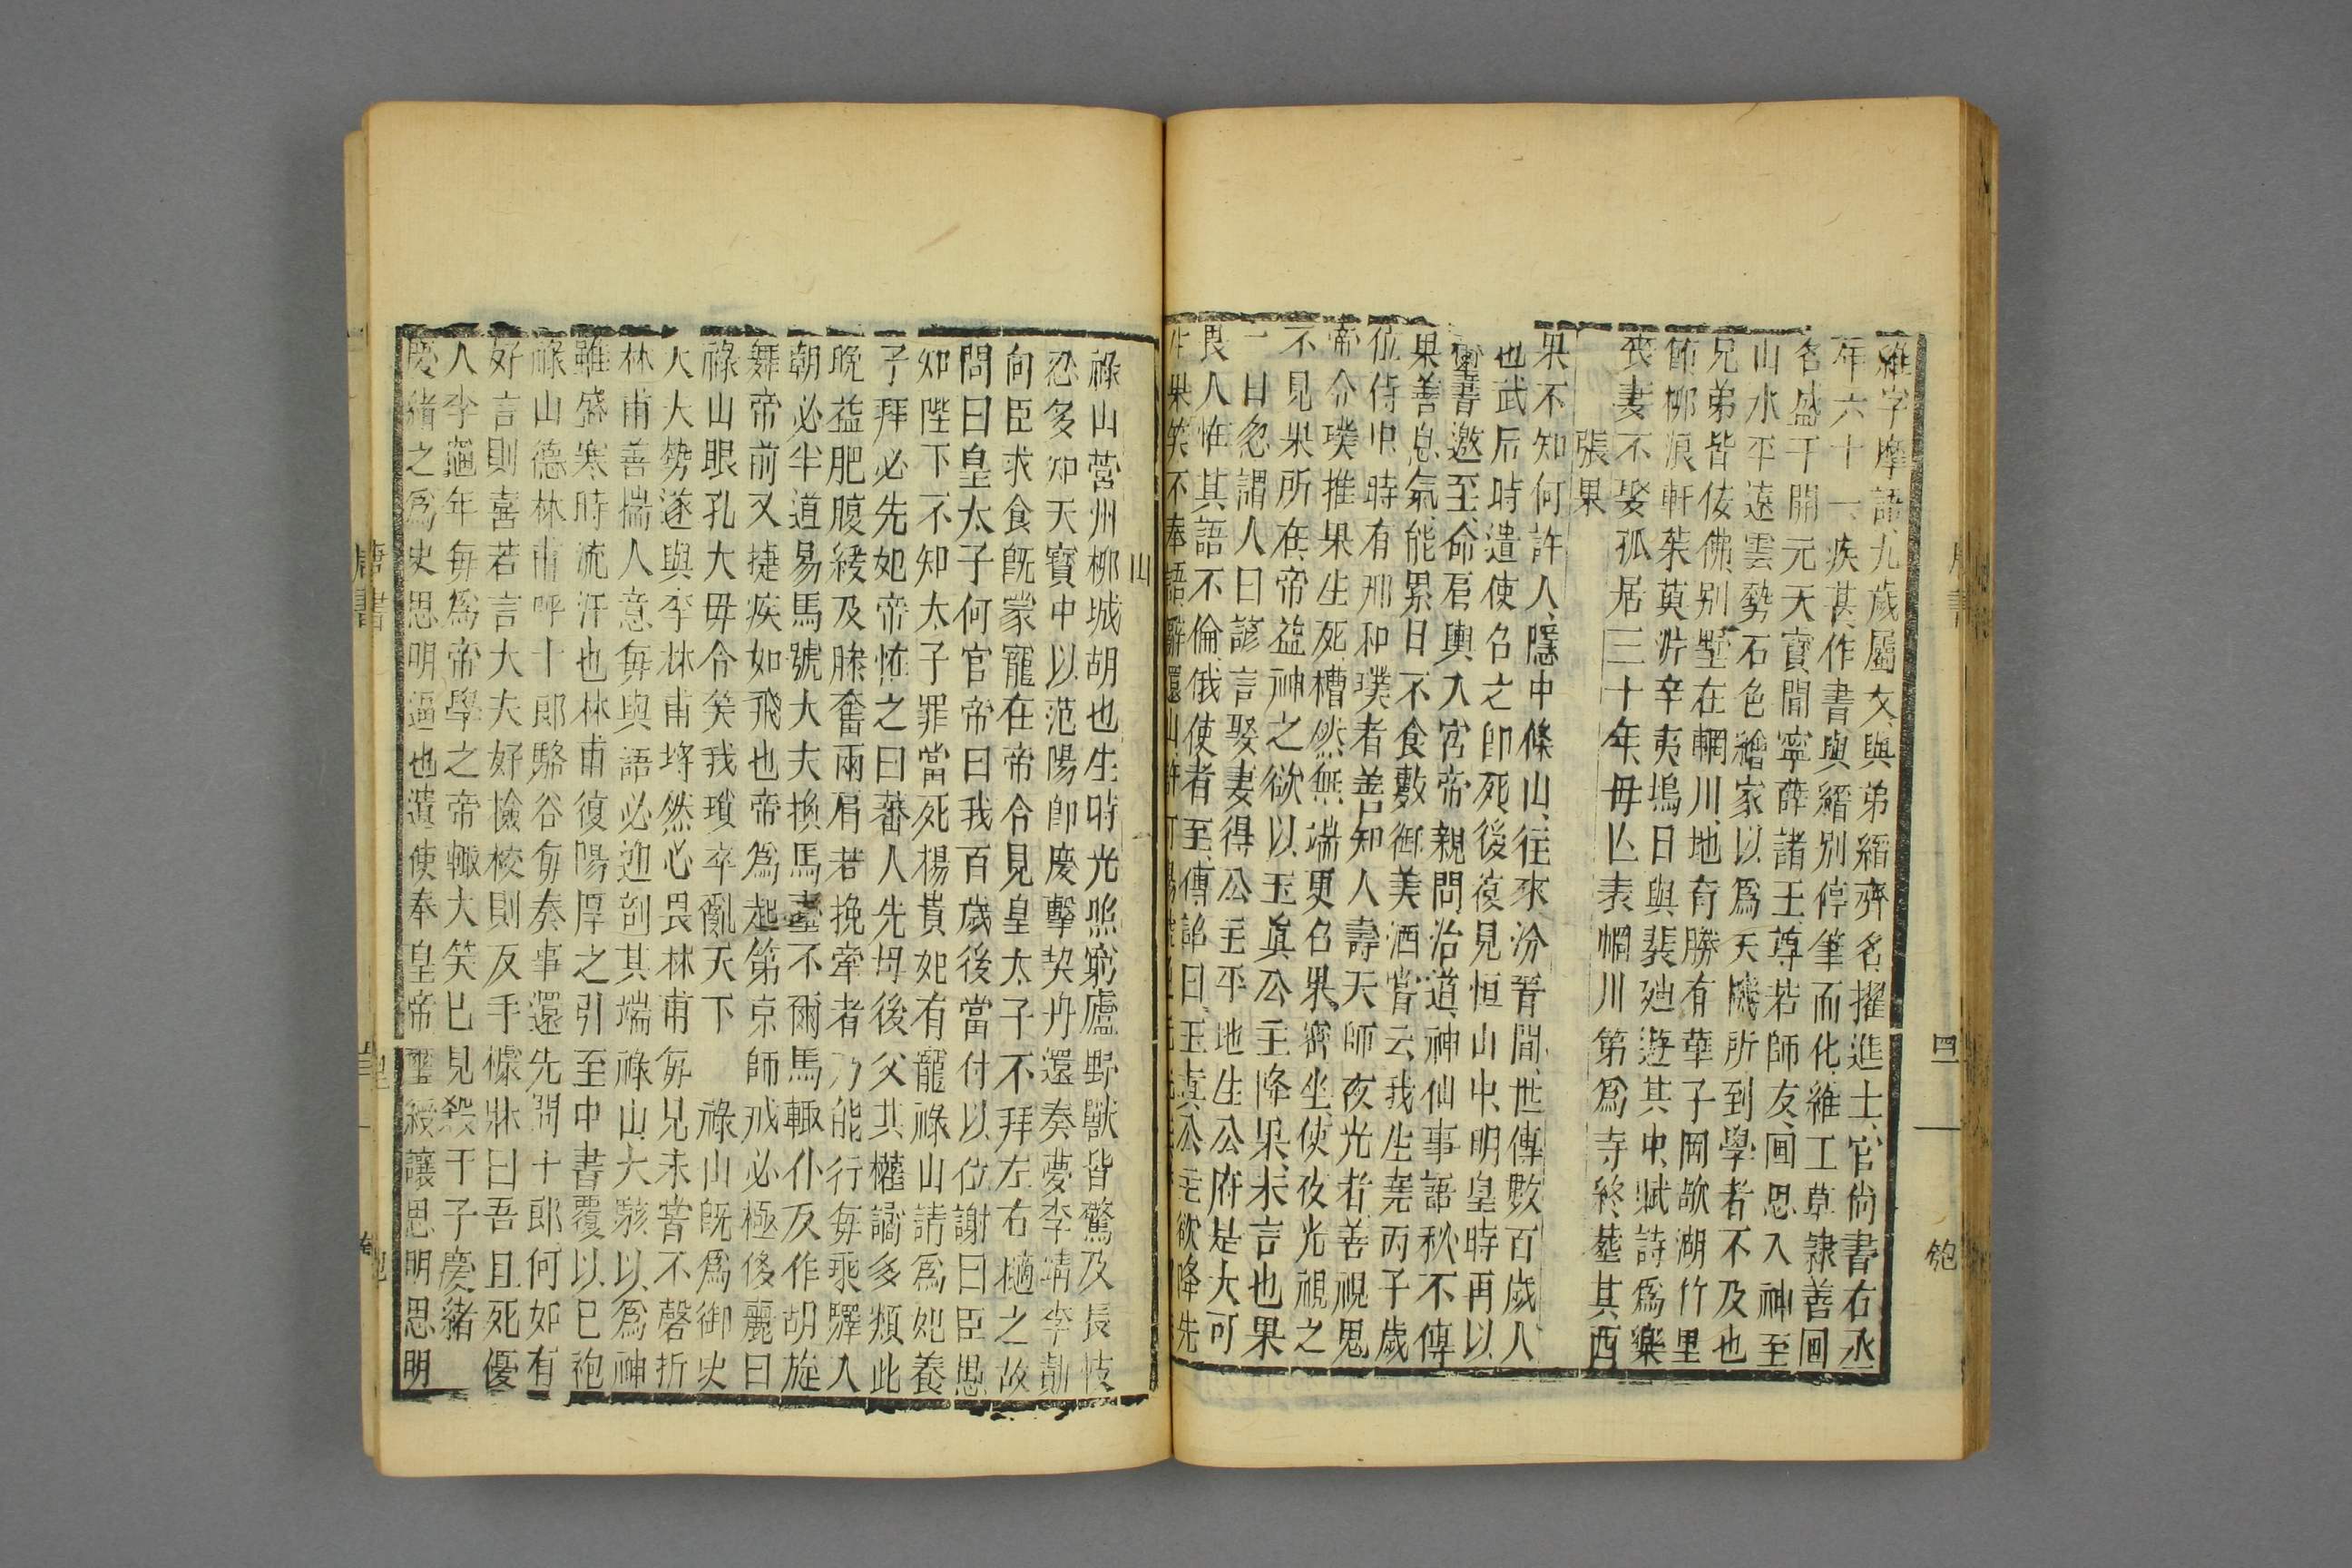 維字摩詰九歲屬文與弟縉齊名擢進士官尚書右丞
年六十一疾甚作書與縉別停筆而化維工草隸善画
名盛于開元天寶間寧薛諸王尊若師友画思入神至
山水平遠雲勢石色繪家以爲天機所到學者不及也
兄弟皆俊佛别墅在輞川地奇勝有華子岡欹湖竹里
舘柳浪軒茱萸沜辛夷塢日與裴廸遊其中賦詩爲樂
喪妻不娶孤居三十年母亾表輞川第爲寺終塟其西
張果
果不知何許人隱中條山往來汾晉間世傳數百歲人
也武后時遣使召之卽死後復見恒山中明皇時再以
璽書邀至命肩輿入宮帝親問治道神仙事語秘不傳
果善息氣能累日不食數御美酒嘗云我生堯丙子歲
位侍中時有邢和璞者善知人壽夭師夜光者善視鬼
帝令璞推果生死懵然無端更召果密坐使夜光視之
不見果所在帝益神之欲以玉眞公主降果未言也果
一日忽謂人曰諺言娶妻得公主平地生公府是大可
畏人怪其語不倫俄使者至傳詔曰玉真公主欲降先
生果笑不奉語辭還山
山
祿山營州柳城胡也生時光照窮廬野獸皆驚及長忮
忍多知天寶中以范陽節慶擊契丹還奏夢李靖李勣
向臣求食旣蒙寵在帝令見皇太子不拜左右擿之故
問曰皇太子何官帝曰我百歲後當付以位謝曰臣愚
知陛下不知太子罪當死楊貴妃有寵祿山請爲妃養
子拜必先妃帝怪之曰蕃人先母後父其權譎多類此
晩益肥腹緩及膝奮兩肩若挽牽者乃能行每乘驛入
朝必半道易馬號大夫換馬臺不爾馬輙仆反作胡旋
舞帝前又捷疾如飛也帝爲起第京師戒必極侈麗曰
祿山眼孔大毋令笑我瑣卒亂天下　祿山旣爲御史
大夫勢遂與李林甫埒然心畏林甫每見未嘗不磬折
林甫善揣人意每與語必迎剖其端祿山大駭以爲神
雖盛寒時流汗也林甫復陽厚之引至中書覆以巳袍
祿山德林甫呼十郎駱谷每奏事還先問十郎何如有
好言則喜若言大夫好撿校則反手㯫牀曰吾且死優
人李龜年每爲帝學之帝輙大笑巳見殺于子慶緒
慶緒之爲史思明逼也遣使奉皇帝璽綬讓思明思明